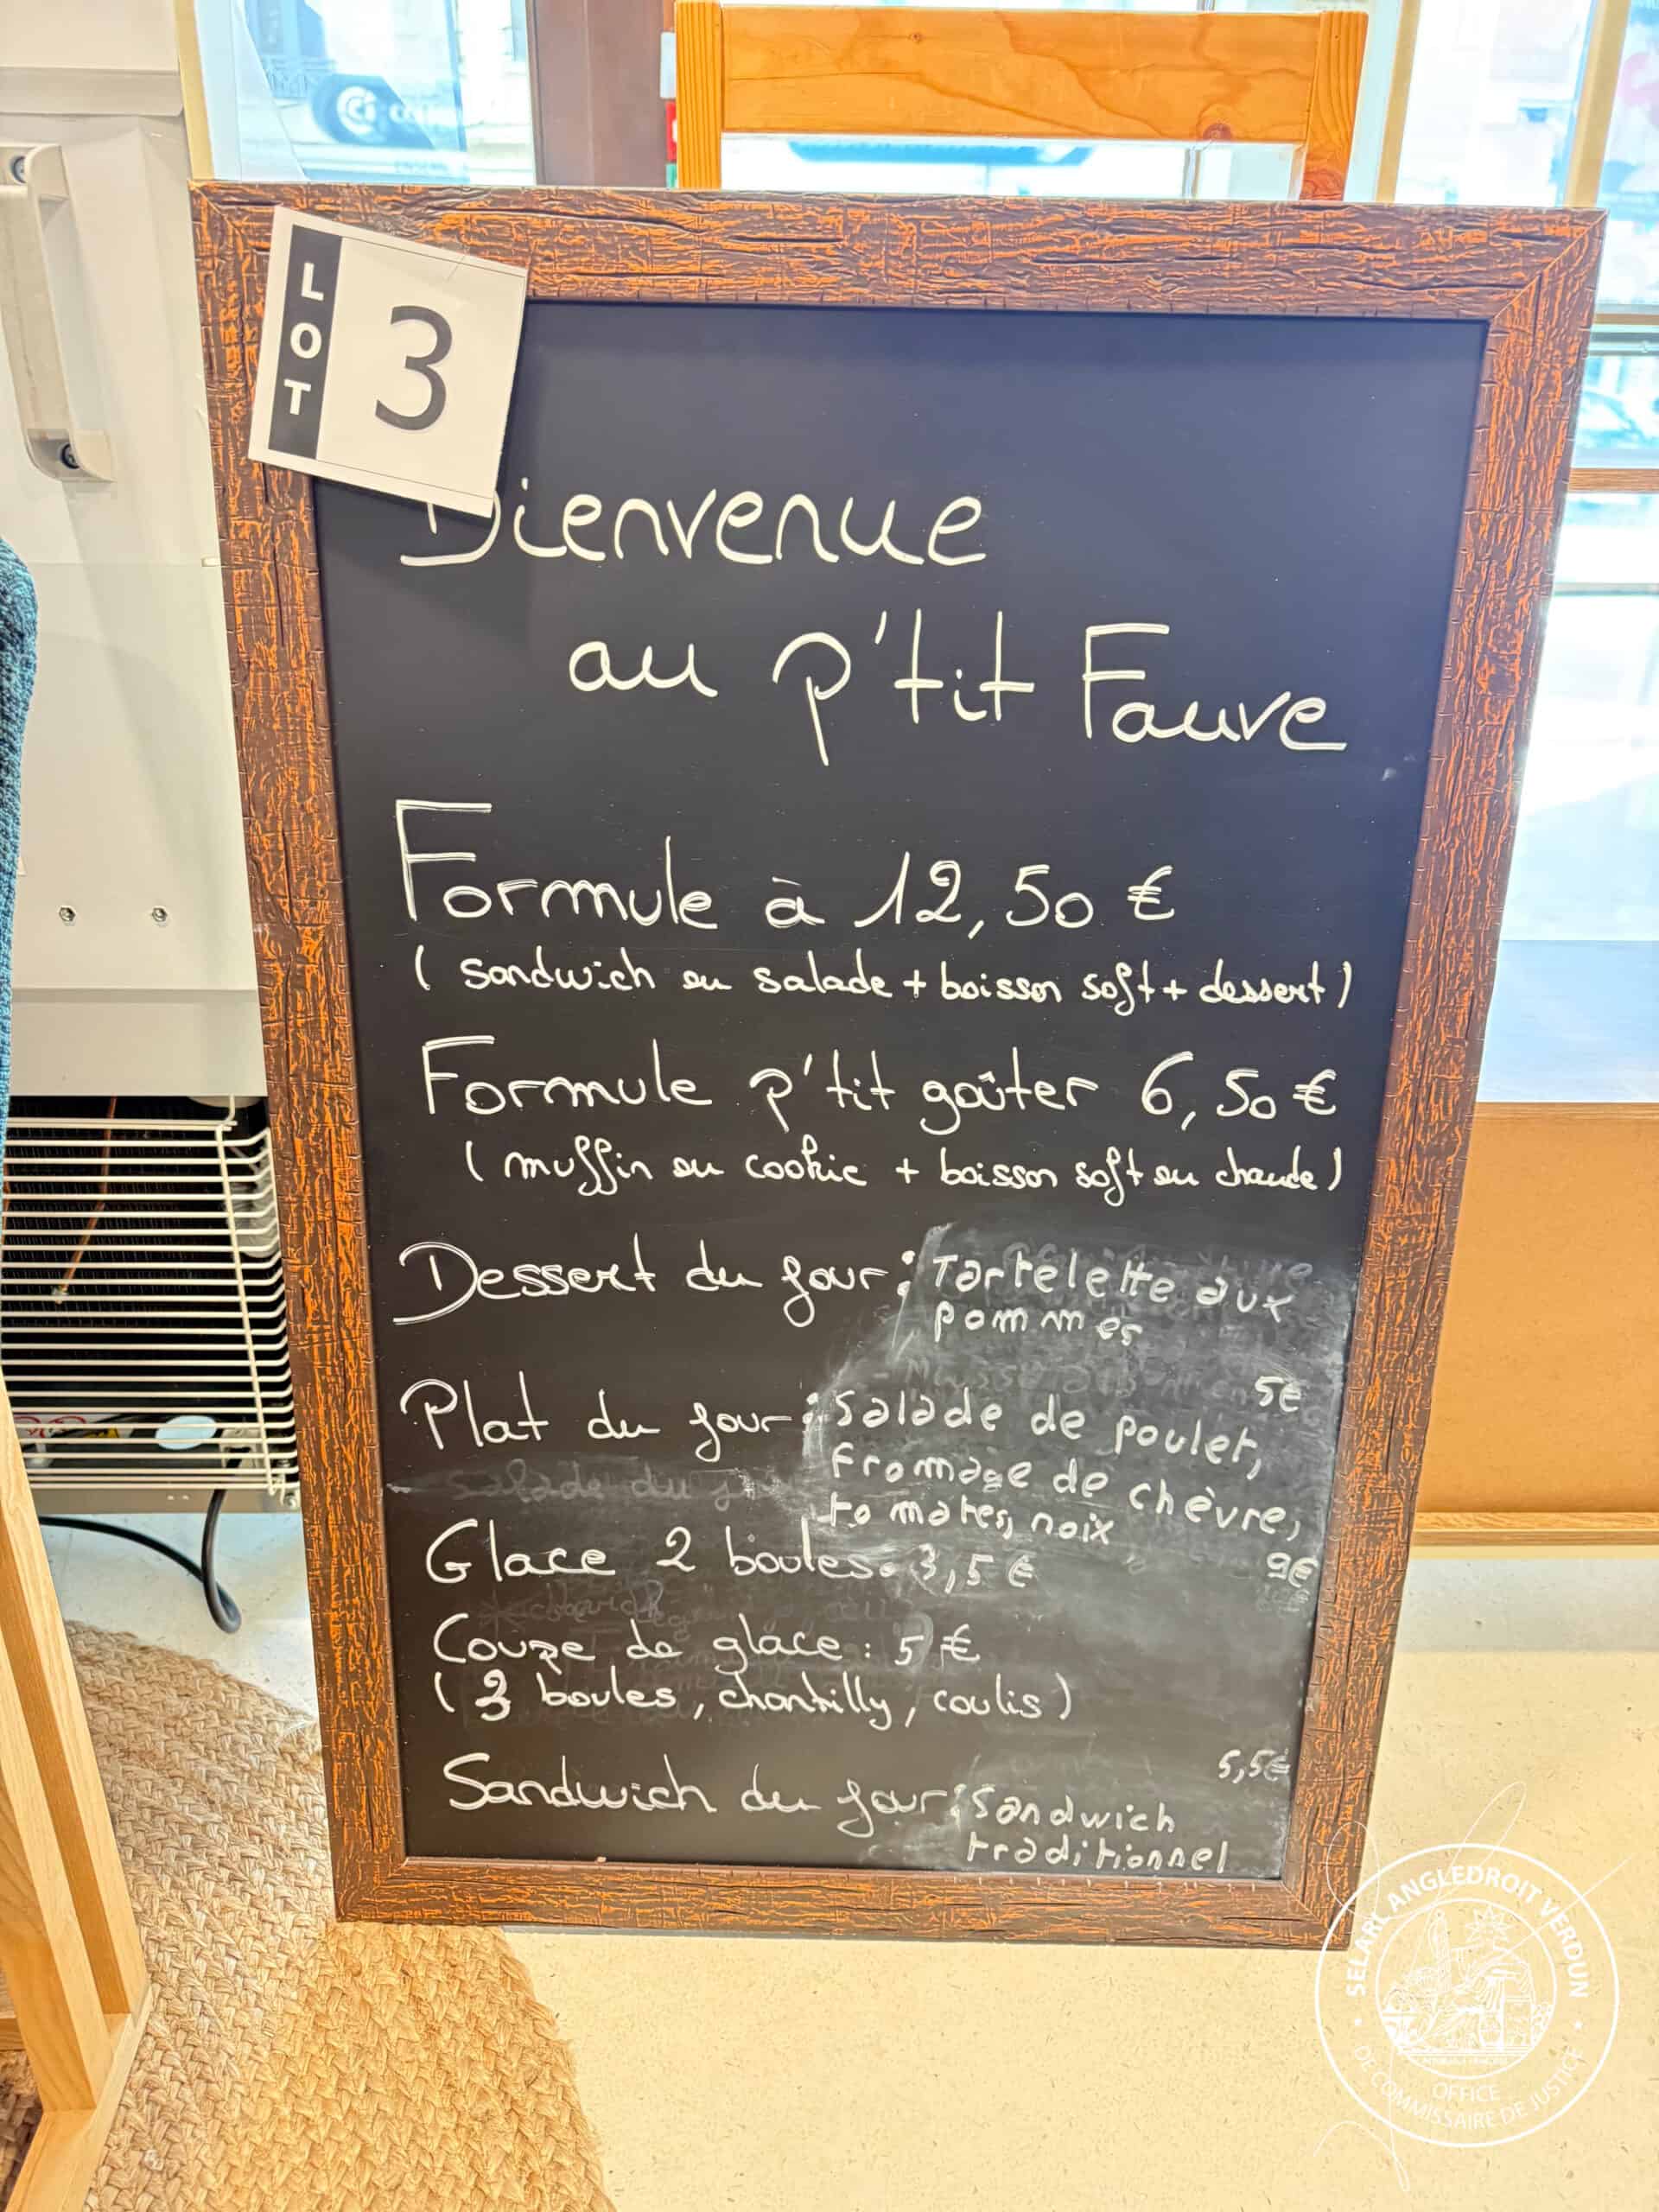 LOT
3
Bienvenue
au p'tit Fauve
Formule à 12,50 €
( sandwich ou salade + boisson soft + dessert )
Formule p'tit goûter 6,50 €
( muffin ou cookie + boisson soft ou chaude )
Dessert du jour : Tartelette aux
pommes
5€
Plat du jour : Salade de poulet,
fromage de chèvre,
tomates, noix
9€
Glace 2 boules : 3,5 €
Coupe de glace : 5 €
( 3 boules, chantilly, coulis )
5,5€
Sandwich du jour : Sandwich
traditionnel
SELARL ANGLEDROIT VERDUN
OFFICE
DE COMMISSAIRE DE JUSTICE